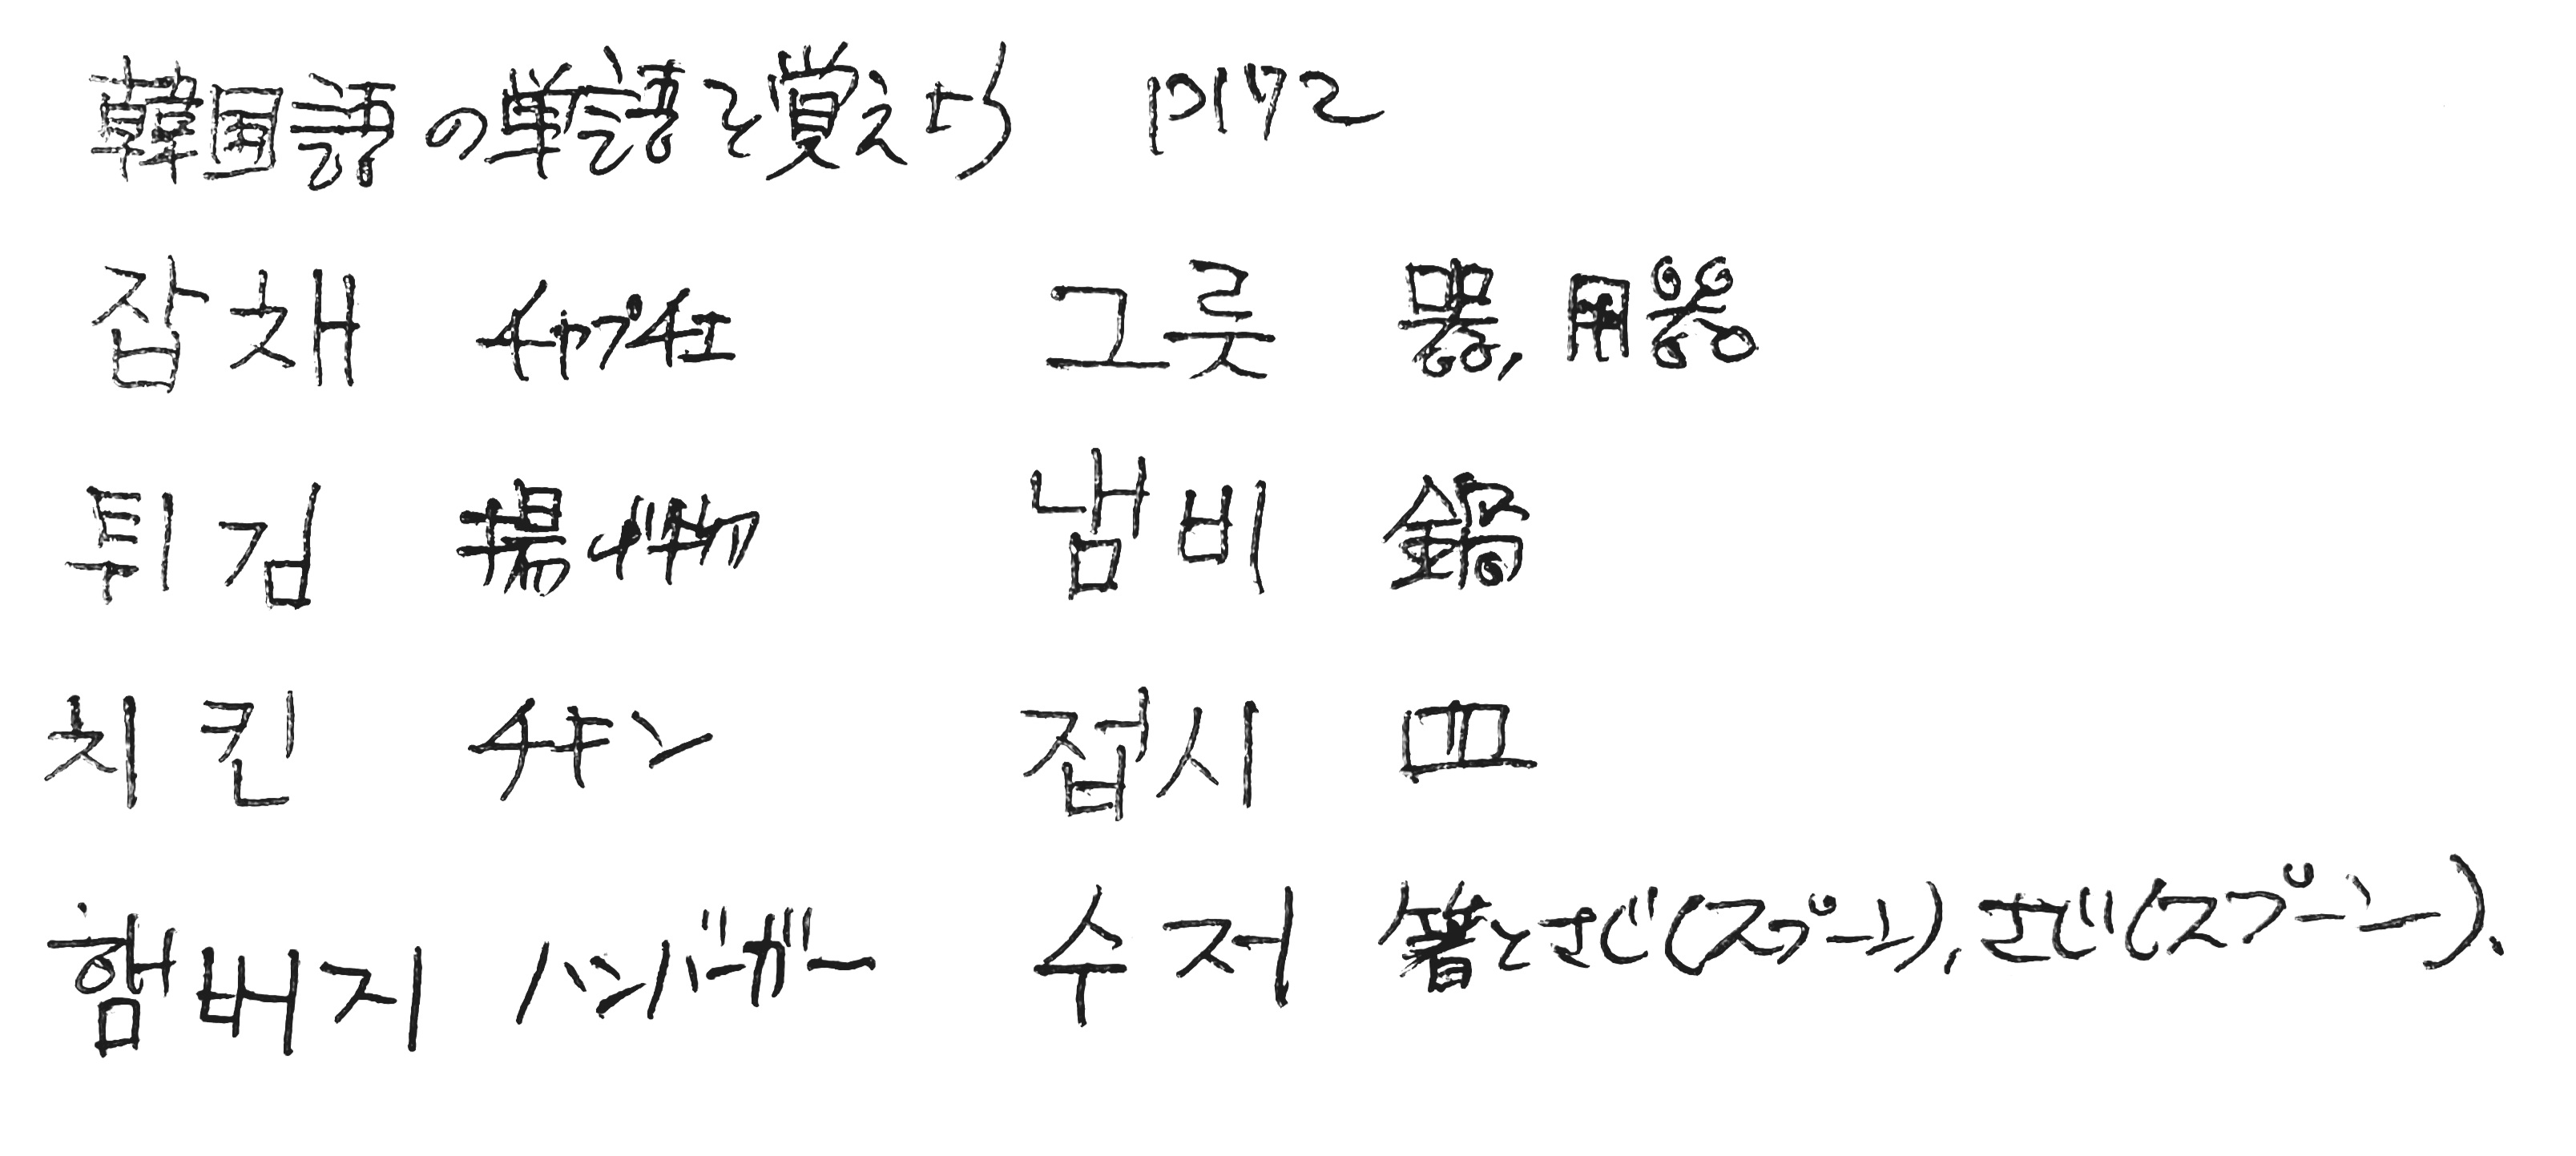 韓国語の単語を覚えよう P172
잡채 チャプチェ 그릇 器,用器
튀김 揚げ物 냄비 鍋
치킨 チキン 접시 皿
햄버지 ハンバーガー 수저 箸とさじ(スプーン),さじ(スプーン).